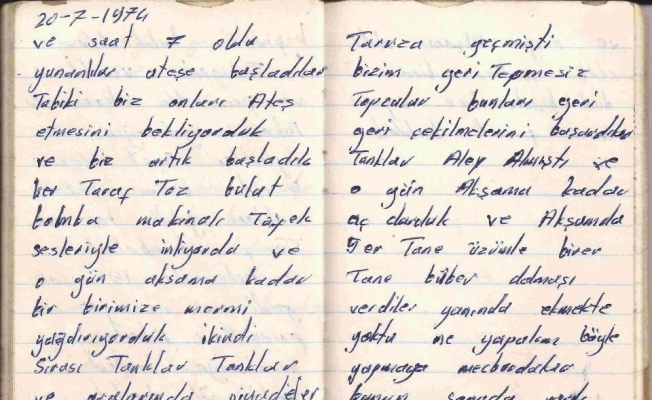 20-7-1974
ve saat 7 oldu
yunanlılar ateşe başladılar
Tabiki biz onların Ateş
etmesini bekliyorduk
ve biz artık başladık
her Taraf Toz bulut
bomba makinalı Tüfek
sesleriyle inliyordu ve
o gün aksama kadar
bir birimize mermi
yağdırıyorduk ikindi
Sırası Tanklar Tanklar
ve aralarında piyadeler
Taruza geçmişti
bizim geri Tepmesiz
Topcular bunları geri
geri çekilmelerini başardılar
Tanklar Alev Almıştı ve
o gün Akşama kadar
aç durduk ve Akşamda
9 er Tane üzümle birer
Tane büber dolması
verdiler yanında ekmekte
yoktu ne yapalım böyle
yapmaya mecburdular
bunun sonunda